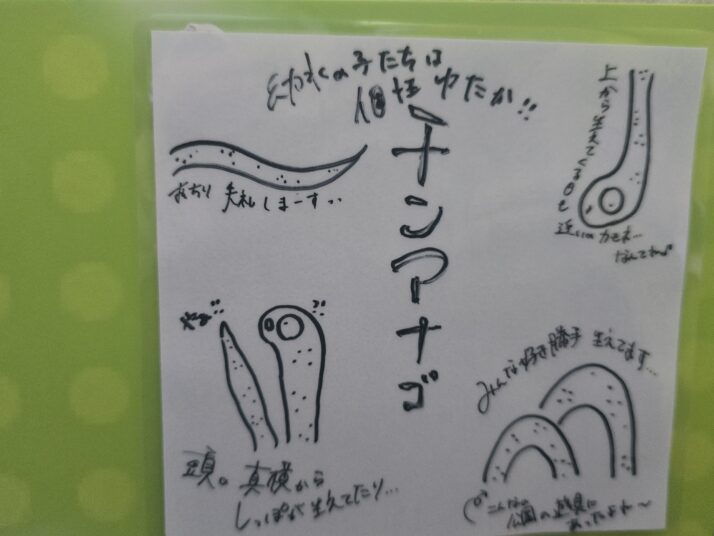 幼水の子たちは
個性ゆたか!!
チンアナゴ
おちり 失礼しまーす..
上から生えてくる日も
近いのかもネ...
なんてねっ
頭。真横から
しっぽが生えてたり...
みんな好き勝手 生えてます...
こんなの
公園の遊具に
あったよね〜